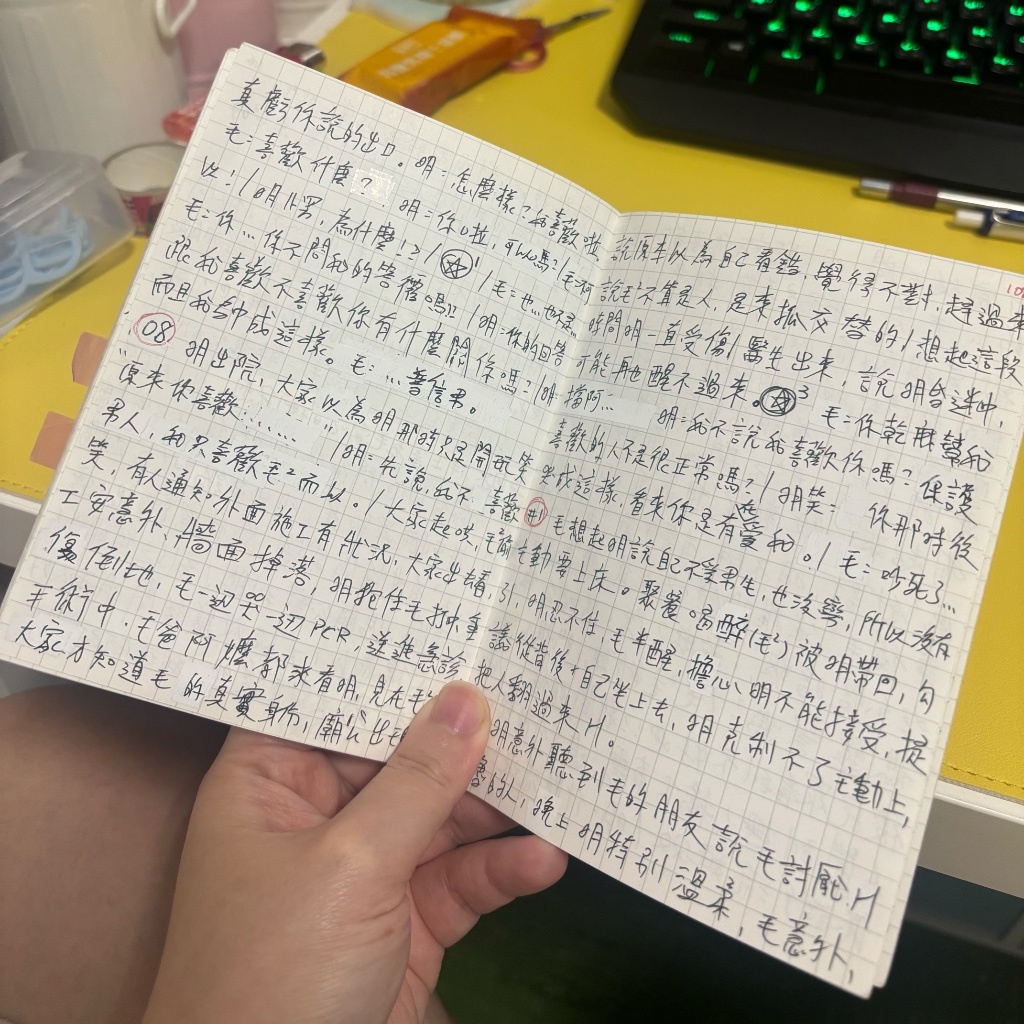 真虧你說的出口。明=怎麼樣?我喜歡啦
毛=喜歡什麼? 明=你啦,可以嗎?/毛=不可
以!/明小哭,為什麼!?/ 1 /毛=也…也不是…
毛=你…你不問我的答覆嗎!? /明=你的回答
跟我喜歡不喜歡你有什麼關係嗎?/明=擋阿…
而且我命中成這樣。 毛=…善信男。
08 明出院,大家以為明那時只是開玩笑
"原來你喜歡……" /明=先說,我不喜歡
男人,我只喜歡毛而以。/大家起哄,毛
笑,有人通知外面施工有狀況,大家出去看,
工安意外,牆面掉落,明抱住毛 重
傷倒地,毛一邊哭一邊PCR,送進急診,
手術中,毛爸阿嬤都來看明,見在毛
大家才知道毛的真實身份,廟公出
說原來以為自己看錯,覺得不對,趕過來
說毛不算是人,是來抓交替的/想起這段
時間明一直受傷/醫生出來,說明昏迷中,
可能再也醒不過來。 3 毛=你乾嘛幫我
明=我不說我喜歡你嗎?保護
喜歡的人不是很正常嗎?/明笑= 你那時後
哭成這樣,看來你是有愛我。/毛=吵死了…
#1 毛想起明說自己不愛男生,也沒彎,所以沒有
主動要上床。聚餐喝醉(毛)被明帶回,勾
引,明忍不住,毛半醒,擔心明不能接受,提
議從背後+自己坐上去,明克制不了主動上,
把人翻過來H。
明意外聽到毛的朋友說毛討厭H
的人,晚上明特別溫柔,毛意外,